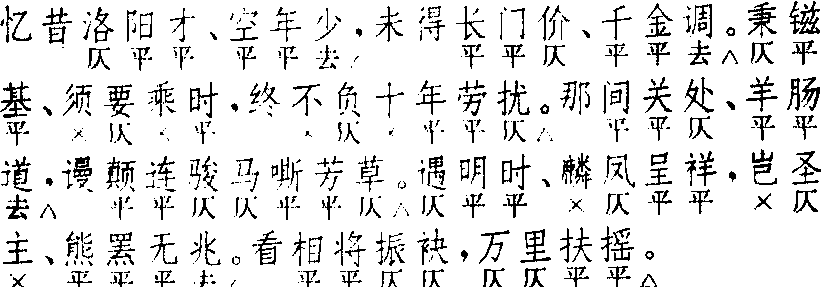 忆昔洛阳才、空年少，未得长门价、千金调。秉镃
仄平平平平去，平平仄平平去△仄平
基、须要乘时，终不负十年劳扰。那间关处、羊肠
平×仄×平×仄×平平仄△平平仄平平
道，谩颠连骏马嘶芳草。遇明时、麟凤呈祥，岂圣
去△平平仄仄平平仄△仄平平×仄平平×仄
主、熊罴无兆。看相将振袂，万里扶摇。
×平平平去平平仄仄仄仄平平△